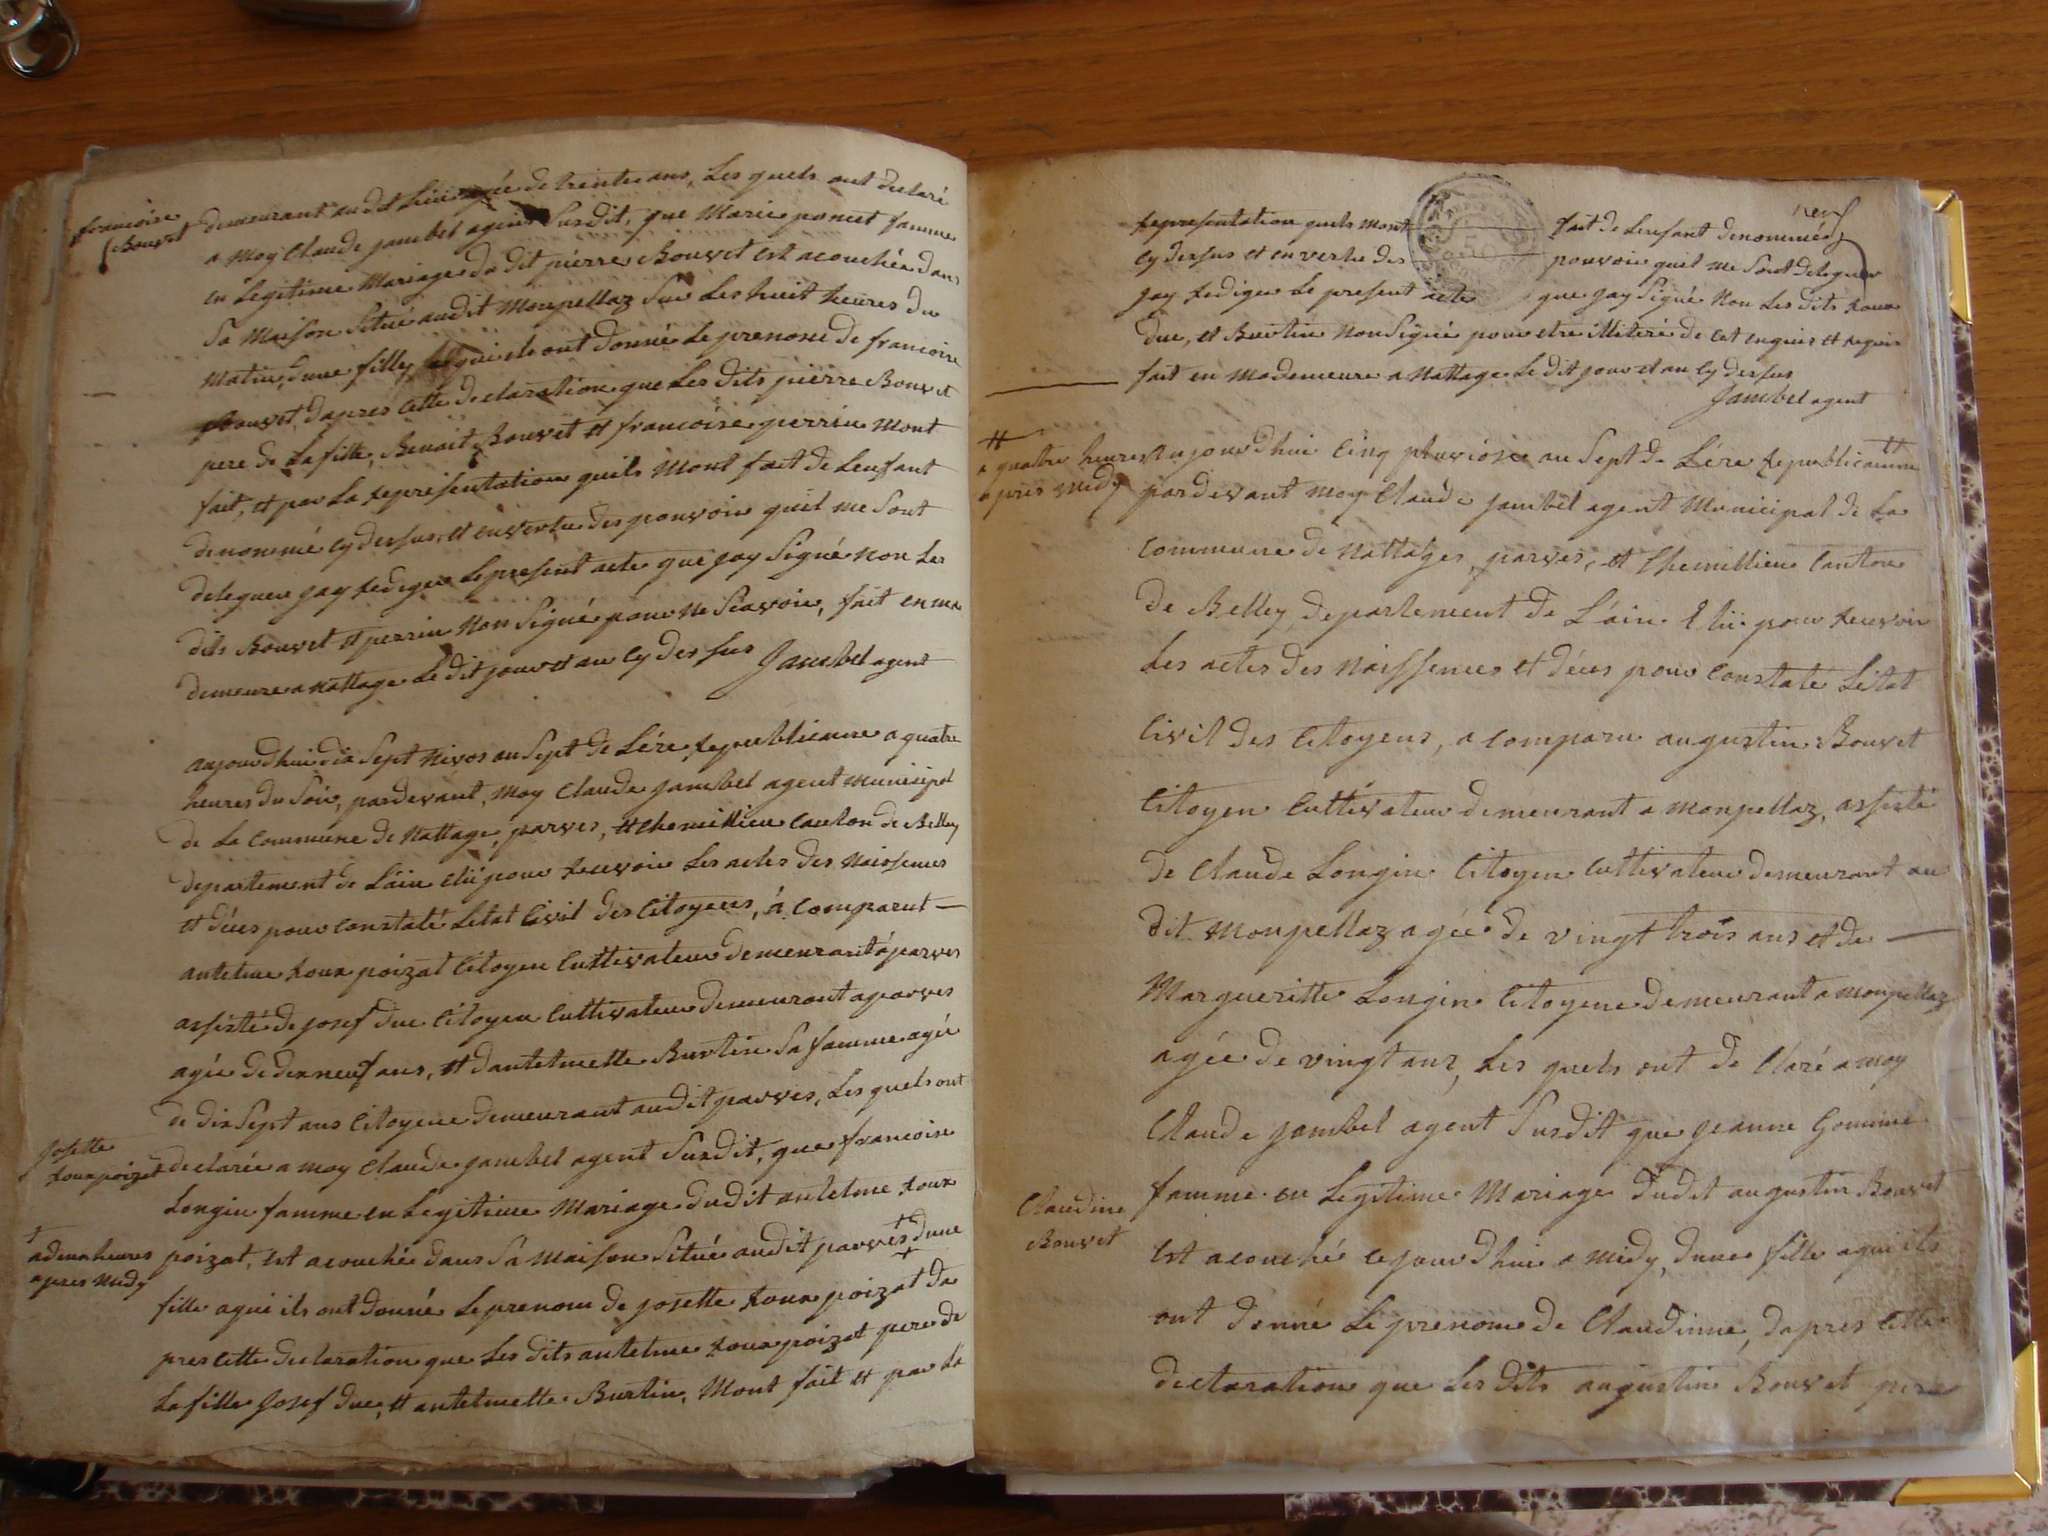 francoise
Bouvet
demeurant audit lieu agée de trente ans, Les quels ont declaré
a moy Claude jambel agent Susdit, que Marie poncet famme
en Legitime Mariage du dit pierre Bouvet Est acouchée dans
Sa Maison Situé audit Monpellaz Sur Les huit heures du
Matin, dune fille a qui ils ont donné Le prenom de francoise
Bouvet, dapres Cette declaration que Les dits pierre Bouvet
pere de La fille, Benoit Bouvet et francoise perrin Mont
fait, et par La representation quils Mont fait de Lenfant
denommé cy dessus, et en vertu des pouvoir quil me Sont
deleguer jay rediger Le present acte que jay Signé non Les
dits Bouvet et perrin Non Signé pour Ne Scavoir, fait en ma
demeure a Nattage Le dit jour et an Cy dessus Jambel agent
aujourdhui dix Sept Nivos an Sept de Lére republicaine a quatre
heures du Soir, pardevant, moy Claude jambel agent municipal
de La Commune de Nattage, parves, et Chemillieu Canton de Belley
departement de Lain élü pour recevoir Les actes des Naissences
et déces pour Constaté Letat Civil des Citoyens, à Comparut —
antelme roux poizat Citoyen Cultivateur demeurant à parves
assisté de josef duc Citoyen Cultivateur demeurant a parves
agée de dixneuf ans, et dantelmette Burtin Sa famme agée
de dix Sept ans Citoyene demeurant audit parves, Les quels ont
Josette
rouxpoizat
declarée a moy Claude jambel agent Susdit, que francoise
Longin famme en Legitime Mariage dudit antelme roux
+
a deux heures
apres Midy
poizat, Est acouchée dans Sa Maison Situé audit parves + dune
fille a qui ils ont donné Le prenom de josette roux poizat da
pres Cette declaration que Les dits antelme roux poizat pere de
La fille Josef duc, et antelmette Burtin, Mont fait et par La
neuf
representation quils Mont fait de Lenfant denommée
cy dessus et en vertu des pouvoir quil me Sont deleguer
jay rediger Le present acte que jay Signé Non Les dits roux
duc, et Burtin Non Signé pour etre illiteré de Cet enquis et requis
fait en Ma demeure a Nattage Le dit jour et an Cy dessus
Jambel agent
#
a quatre heures
apres Midy
aujourdhui Cinq pluviose an Sept de Lére republicainne #
pardevant moy Claude jambel agent Municipal de La
Commune de Nattages, parves, et Chemillieu Canton
de Belley, departement de Láin Elü pour recevoir
Les actes des Naissences et déces pour Constaté Letat
Civil des Citoyens, a Comparu augustin Bouvet
Citoyen Cultivateur demeurant a Monpellaz, assisté
de Claude Longin Citoyen Cultivateur demeurant au
dit Monpellaz agée de vingt trois ans et de —
Margueritte Longin Citoyene demeurant a monpellaz
agée de vingt ans, Les quels ont de Claré a moy
Claude jambel agent Susdit que jeanne Gomine
Claudine
Bouvet
famme en Legitime Mariage dudit augustin Bouvet
Est acouché ce jourdhui a Midy, dune fille a qui ils
ont donné Le prenom de Claudinne, dapres Cette
declaration que Les dits augustin Bouvet pere